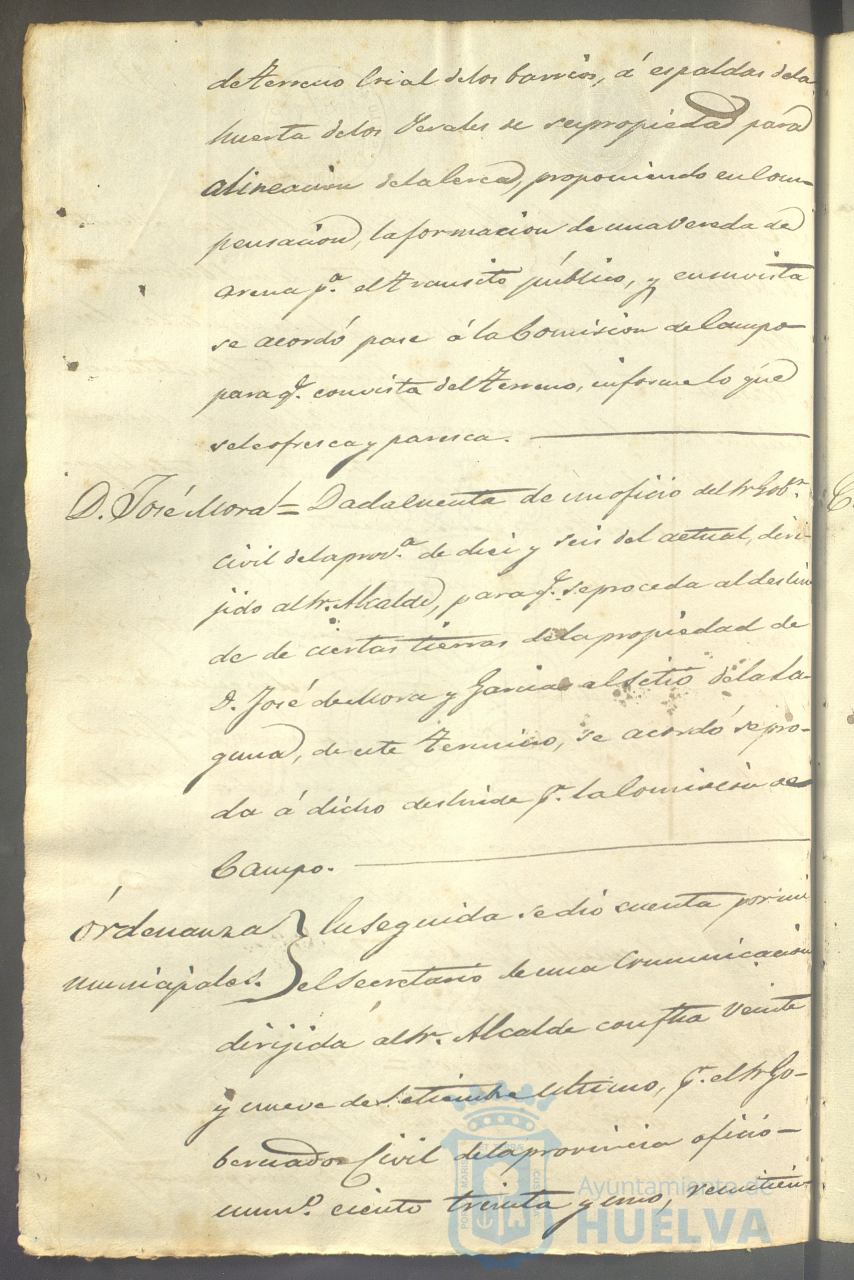 de terreno Erial de los barrios, á espaldas de la
huerta de los Perales de su propiedad para
alineacion de la cerca, proponiendo en com-
pensacion, la formacion de una vereda de
arena p.ª el transito público, y en su vista
se acordó pase á la Comision de Campo
para q.e con vista del terreno, informe lo que
se le ofresca y paresca.
D. José Mora = Dada cuenta de un oficio del Sr. Gob.or
Civil de la prov.ª de diez y seis del actual, diri-
jido al Sr. Alcalde, para q.e se proceda al deslin
de de ciertas tierras de la propiedad de
D. José de Mora y Garcia al sitio de la La-
guna, de este termino, se acordó se pro-
da á dicho deslinde p.r la Comision de
Campo.
órdenanza } En seguida se dió cuenta por mi
municipales. } el Secretario de una Comunicacion
dirijida al Sr. Alcalde con fha veinte
y nueve de Setiembre ultimo, p.r el Sr. Go-
bernador Civil de la provincia oficio
num.o ciento treinta y uno, remitien
Ayuntamiento de
HUELVA